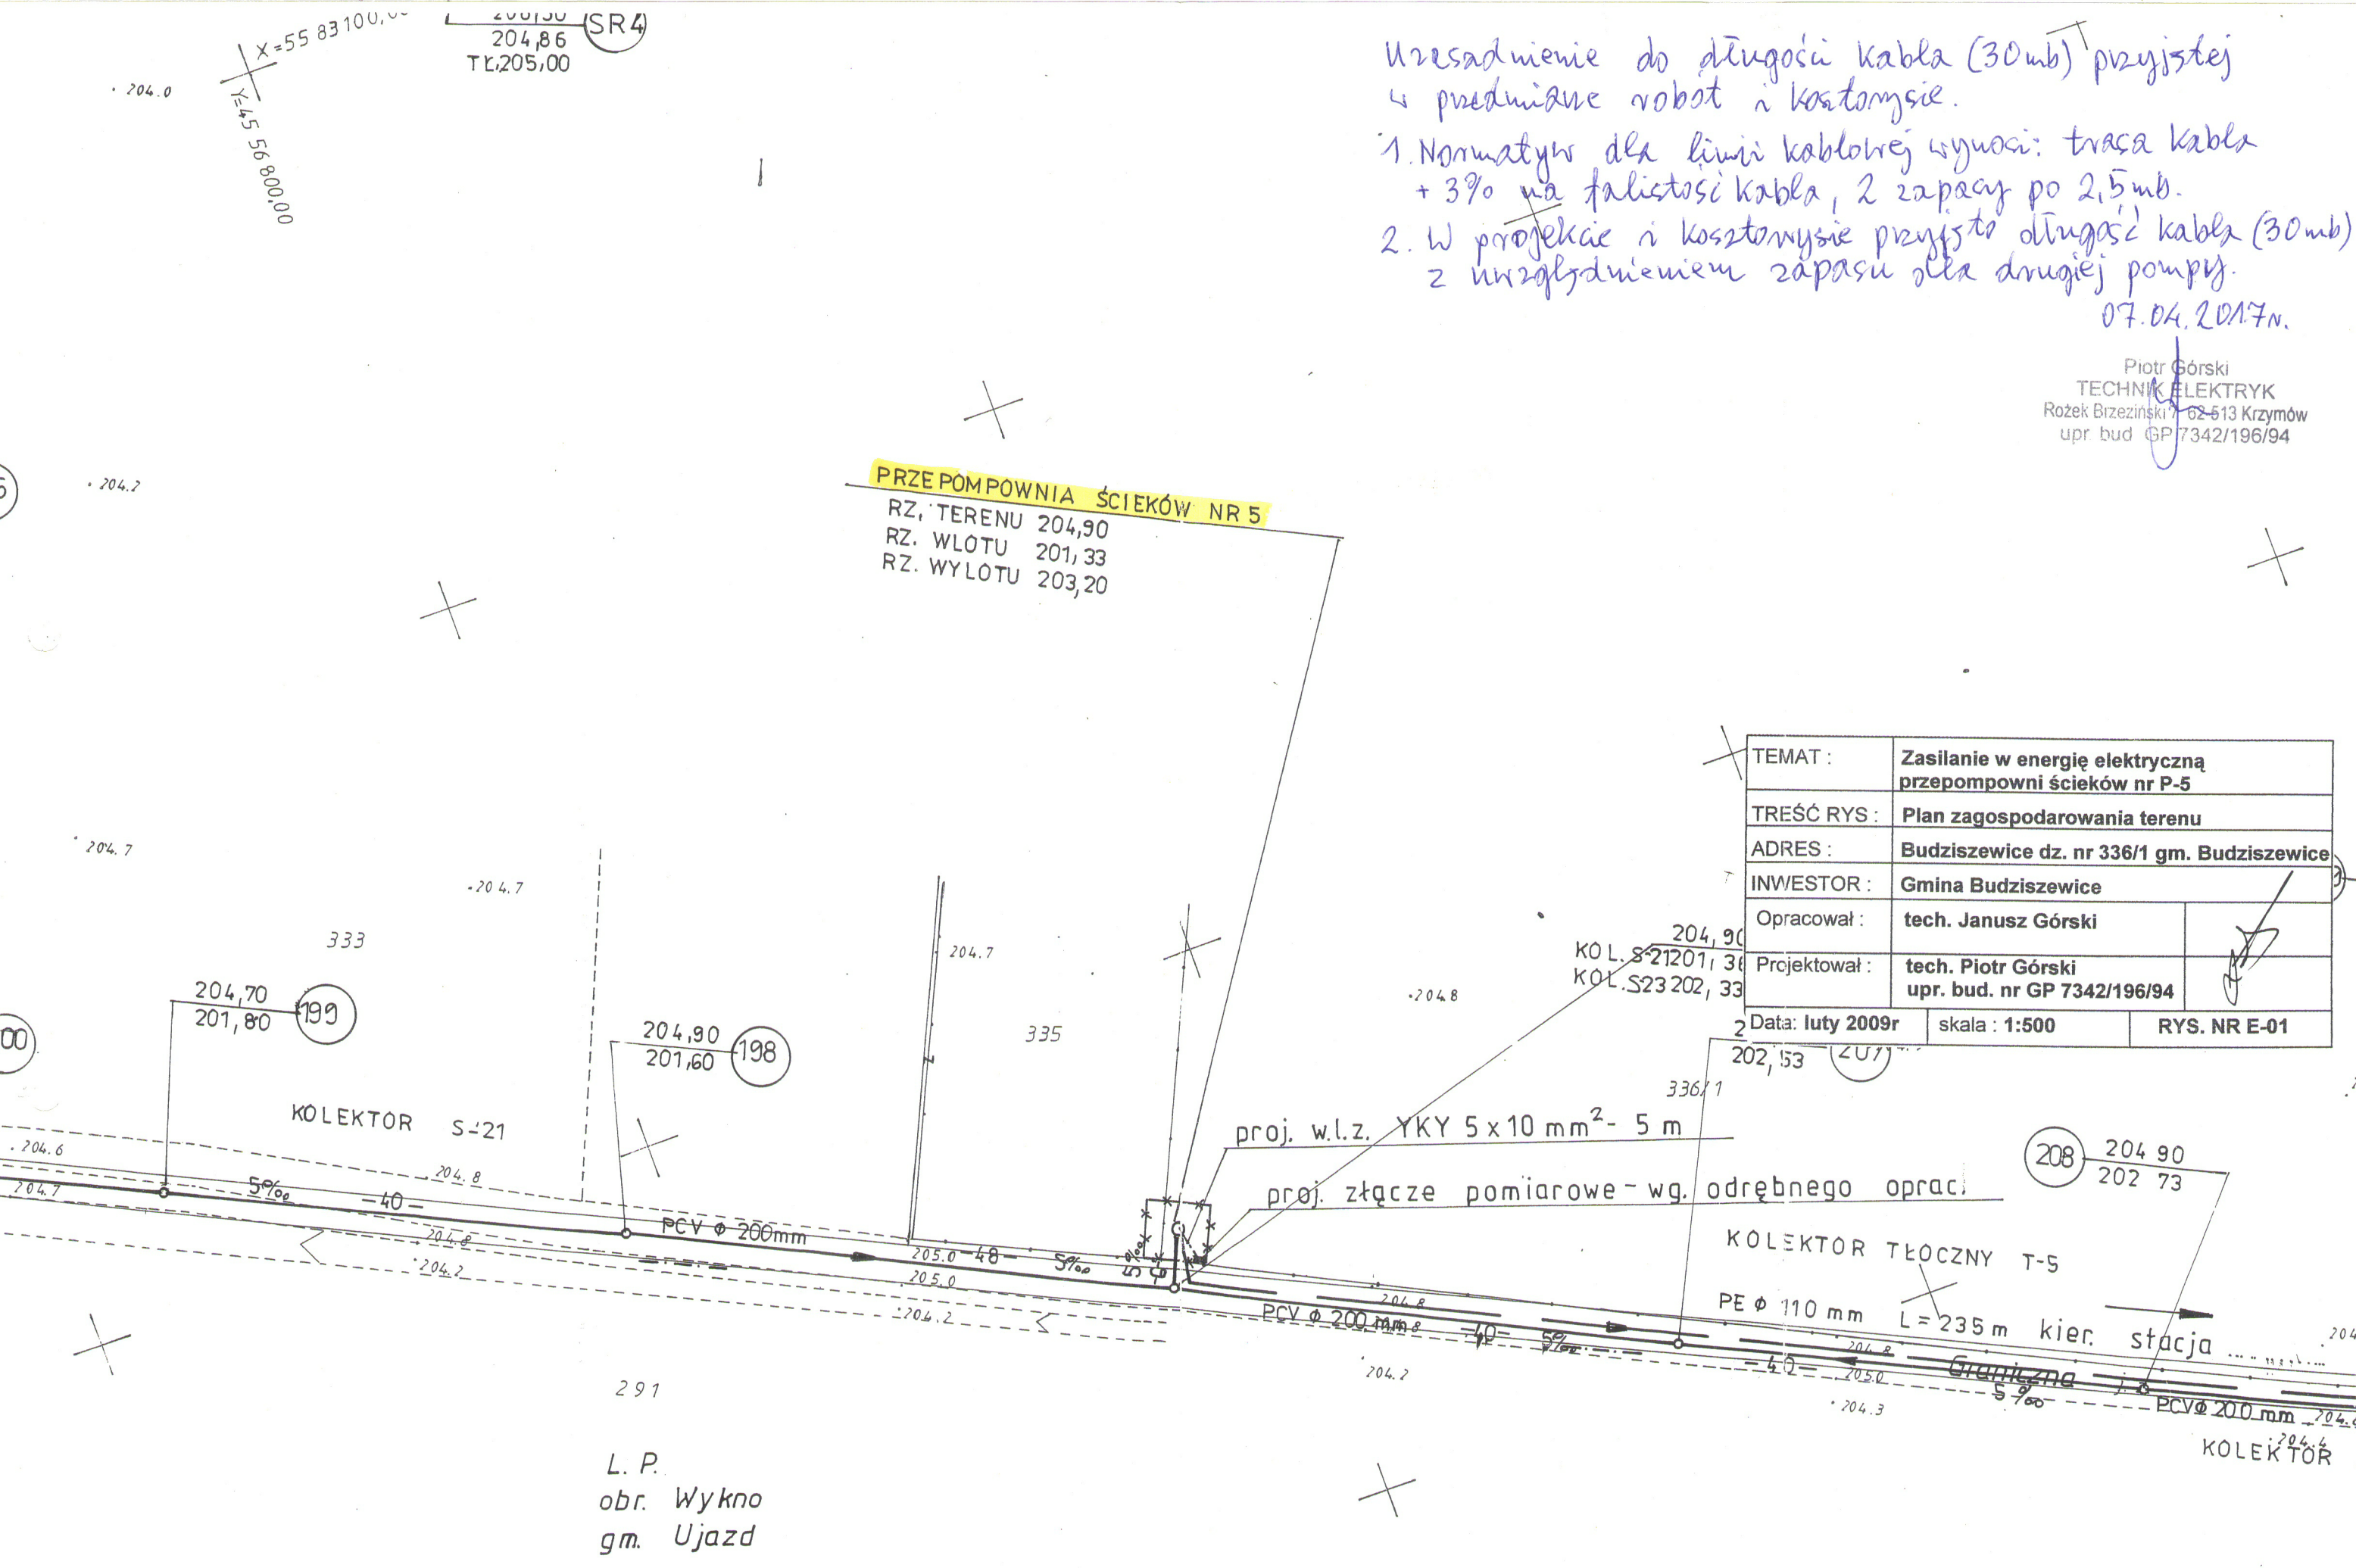 X=55 83100,
Y=45 56800,00
204,86
TŁ.205,00
SR4
204.0
Uzasadnienie do długości kabla (30mb) przyjętej
w przedmiarze robót i kosztorysie.
1. Normatyw dla linii kablowej wynosi: trasa kabla
+ 3% na falistość kabla, 2 zapasy po 2,5mb.
2. W projekcie i kosztorysie przyjęto długość kabla (30mb)
z uwzględnieniem zapasu dla drugiej pompy.
07.04.2017r.
Piotr Górski
TECHNIK ELEKTRYK
Rożek Brzeziński 7 62-513 Krzymów
upr. bud GP 7342/196/94
204.2
PRZEPOMPOWNIA ŚCIEKÓW NR 5
RZ. TERENU 204,90
RZ. WLOTU 201,33
RZ. WYLOTU 203,20
TEMAT : Zasilanie w energię elektryczną
przepompowni ścieków nr P-5
TREŚĆ RYS : Plan zagospodarowania terenu
ADRES : Budziszewice dz. nr 336/1 gm. Budziszewice
INWESTOR : Gmina Budziszewice
Opracował : tech. Janusz Górski
Projektował : tech. Piotr Górski
upr. bud. nr GP 7342/196/94
Data: luty 2009r skala : 1:500 RYS. NR E-01
204.7
204.7
333
204.7
335
204.8
204,90
KOL. S-21 201, 3
KOL. S23 202, 33
204,70
201,80
199
204,90
201,60
198
00
202,53
201
336/1
KOLEKTOR S-21
proj. w.l.z. YKY 5x10 mm2- 5 m
proj. złącze pomiarowe - wg. odrębnego oprac.
208
204 90
202 73
204.6
204.7
5‰
-40-
204.8
204.8
204.2
PCV ϕ 200mm
205.0
-48-
5‰
205.0
204.2
5‰
KOLEKTOR TŁOCZNY T-5
PE ϕ 110 mm L=235m kier. stacja
204.8
PCV ϕ 200 mm
-40-
5‰
204.2
-40-
204.8
205.0
Graniczna
5‰
204.3
PCVϕ 200 mm
204.4
KOLEKTOR
291
L. P.
obr. Wykno
gm. Ujazd